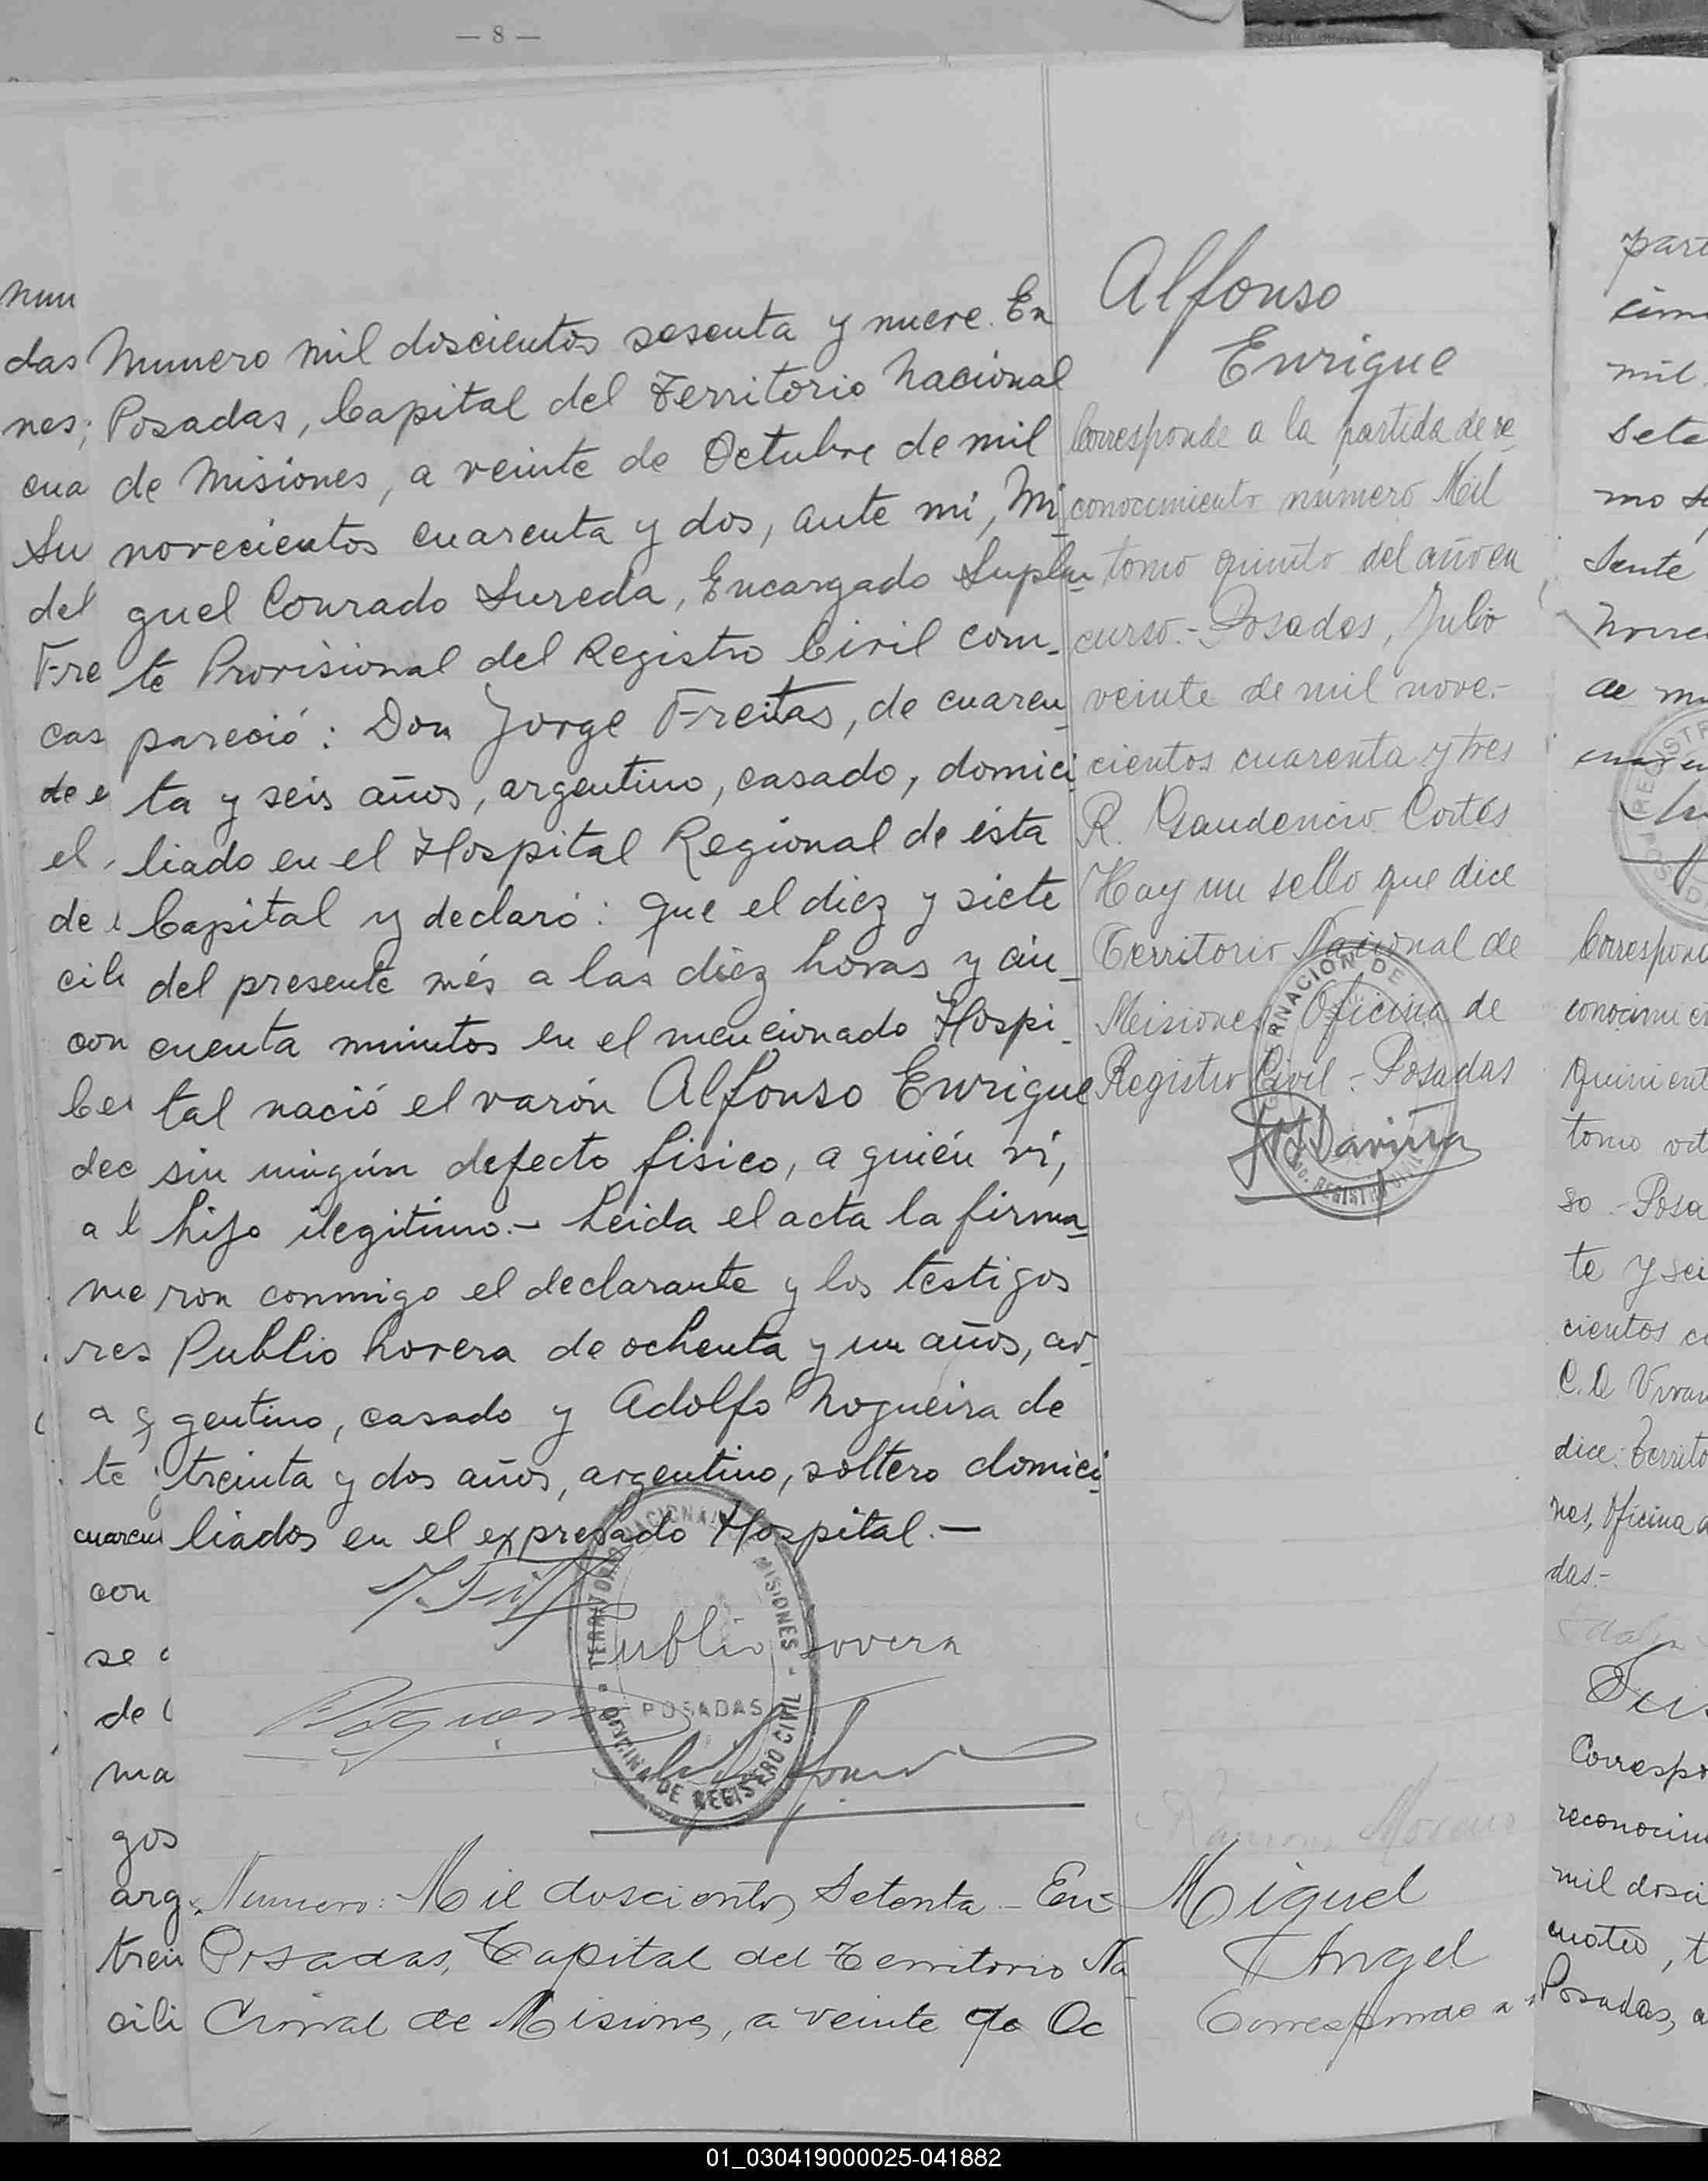 — 8 —
Numero mil doscientos sesenta y nueve. En
Posadas, Capital del Territorio Nacional
de Misiones, a veinte de Octubre de mil
novecientos cuarenta y dos, ante mi, Mi
guel Conrado Sureda, Encargado Suplen
te Provisional del Registro Civil com-
pareció: Don Jorge Freitas, de cuaren
ta y seis años, argentino, casado, domici
liado en el Hospital Regional de ésta
Capital y declaró: Que el diez y siete
del presente més a las diez horas y cin-
cuenta minutos en el mencionado Hospi-
tal nació el varón Alfonso Enrique
sin ningún defecto fisico, a quién vi,
hijo ilegitimo.- Leida el acta la firma
ron conmigo el declarante y los testigos
Publio Lovera de ochenta y un años, ar
gentino, casado y Adolfo Nogueira de
treinta y dos años, argentino, soltero domici
liados en el expresado Hospital.—
Publio Lovera
TERRITORIO NACIONAL MISIONES
POSADAS
OFICINA DE REGISTRO CIVIL
Numero: Mil doscientos Setenta - En
Posadas, Capital del Territorio Na
cional de Misiones, a veinte de Oc
Alfonso
Enrique
Corresponde a la partida de re
conocimiento número Mil
tomo quinto del año en
curso.- Posadas, Julio
veinte de mil nove-
cientos cuarenta y tres
R. Gaudencio Cortés
Hay un sello que dice
Territorio Nacional de
Misiones Oficina de
Registro Civil - Posadas
GOBERNACION DE
REGISTRO CIVIL
Ramona Moreno
Miguel
Angel
Corresponde a
num
das
nes;
cua
Su
del
Fre
cas
de e
el
de
cili
con
Cer
dec
a l
me
res
a g
te
cuaren
con
se
de
ma
gos
arg
trein
cili
part
mil
Sete
mo
Sente
nove
de mi
Correspond
conocimien
quinient
tomo oct
so.- Posa
te y sei
cientos cu
C. D. Vivan
dice: Territo
nes, Oficina d
das.-
Correspo
reconocim
mil dosci
cuatro, t
Posadas, a
01_030419000025-041882